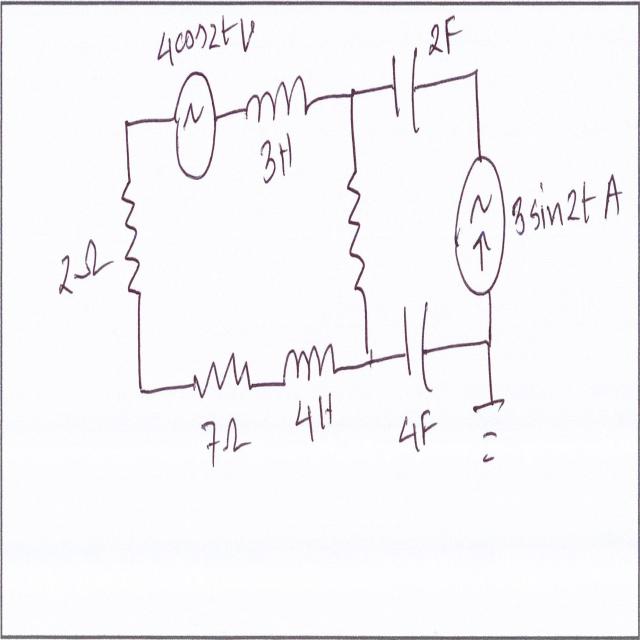 4cos2t V
2F
3H
3sin2t A
2Ω
7Ω
4H
4F